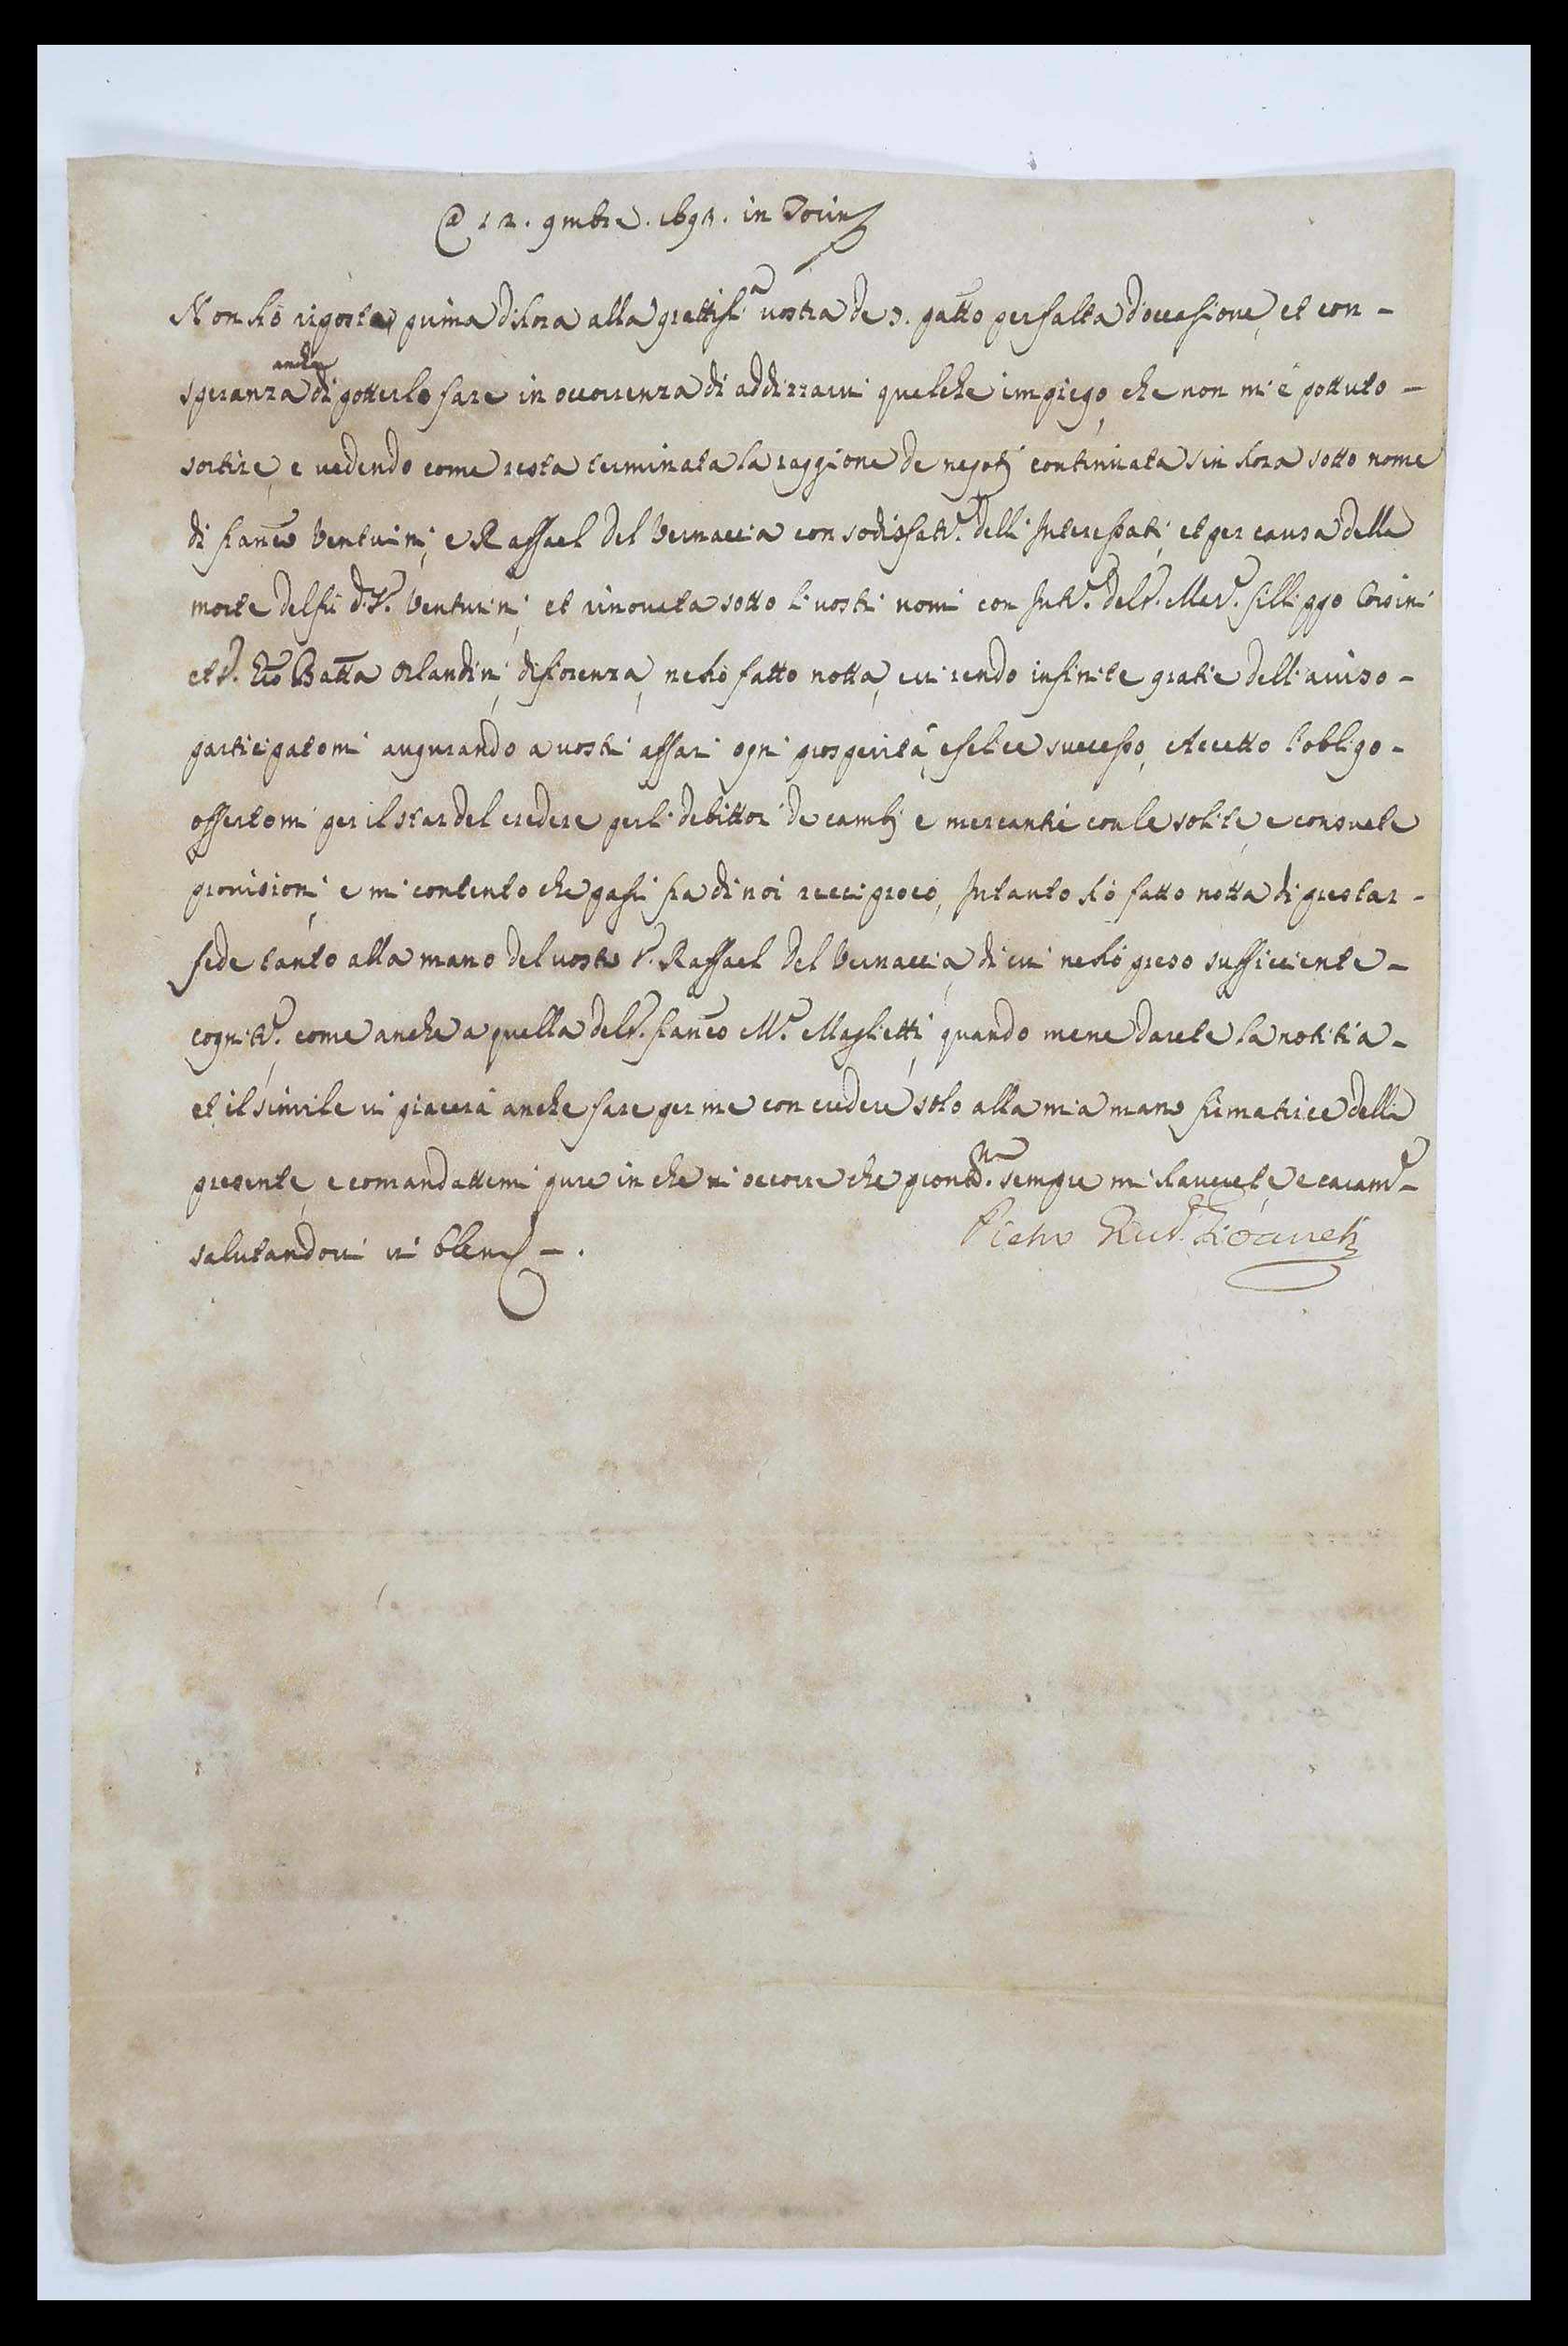 @ 12. 9mbre. 1693. in Torino
Non hò risposto prima d'hora alla grattis.ª vostra de 3. patto per falta d'occasione, et con -
speranza anche di potterlo fare in occorrenza di addizzarvi quelche impiego, che non mi è pottuto -
sortire, e vedendo come resta terminata la raggione de negotj continuata sin hora sotto nome
di Franco Venturini, e Raffael del Vernaccia con sodisfat.e delli Interessati, et per causa della
morte del fù d. Sr. Venturini, et rinovata sotto li vostri nomi con Int.e del Sr. Mar.e Fillippo Corsini
et Sr. Gio Batta Orlandini, di Fiorenza, ne hò fatto notta, e vi rendo infinite gratie dell'aviso -
participatomi augurando a vostri affari ogni prosperità, e felice successo, Accetto l'obligo -
offertomi per il star del credere per li debittori de cambj e mercantie con le solite, e consuete
provisioni, e mi contento che passi fra di noi recciproco, Intanto hò fatto notta di prestar -
fede tanto alla mano del vostro Sr. Raffael del Vernaccia, di cui ne hò preso sufficciente -
cognit.e, come anche a quella del Sr. Franco M.a Maglietti, quando mene darete la notitia -
et il simile vi piacerà anche fare per me con credere solo alla mia mano firmatrice della
presente, e comandattemi pure in che vi occorre che pront.mo sempre mi haverete, e caram.e -
salutandovi vi
Pietro